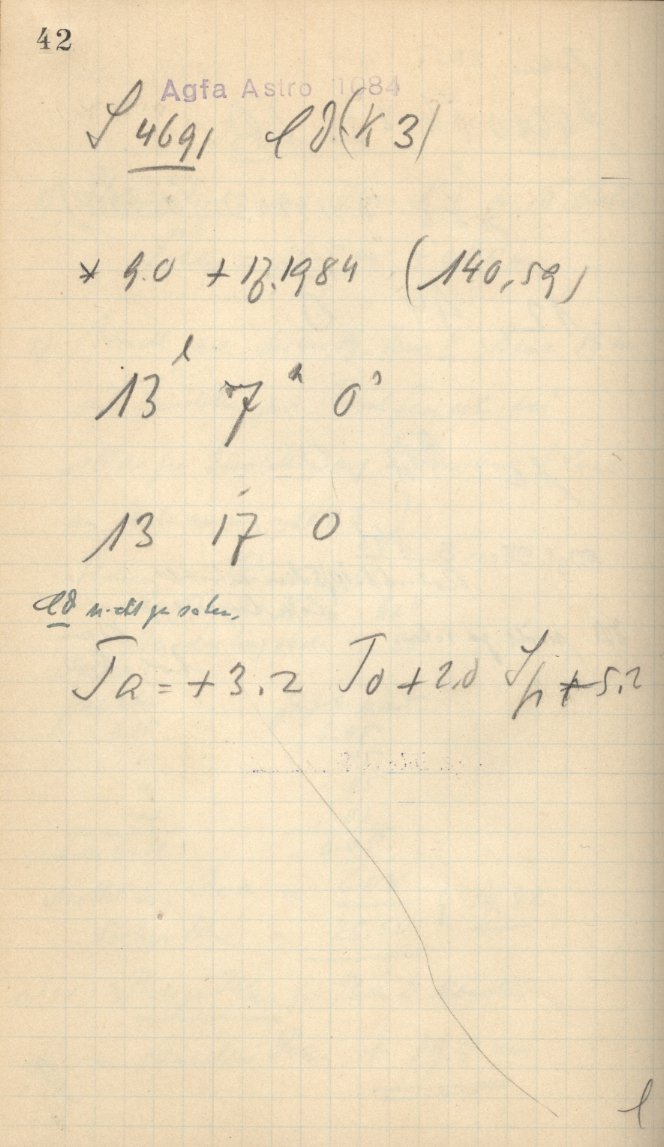 42
Agfa Astro 1084
S 4691 (K 3)
* 9.0 + 17.1984 (140, 59)
13 7 0
13 17 0
nicht gesehen.
Ta = + 3.2 Td + 2.0 Sp + 5.2